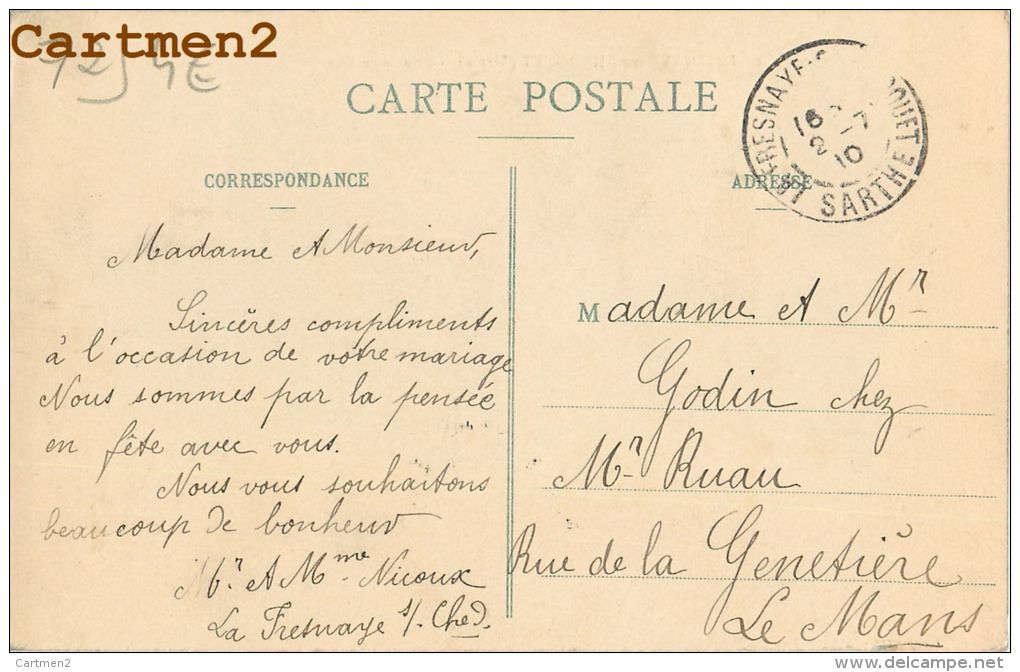 Cartmen2
72 J 4E
CARTE POSTALE
LA FRESNAYE-S-
OUET
SARTHE
16
2 -7
10
CORRESPONDANCE
ADRESSE
Madame et Monsieur,
Sincères compliments
à l'occasion de votre mariage
Nous sommes par la pensée
en fête avec vous.
Nous vous souhaitons
beaucoup de bonheur
Mr. et Mme Nicoux
La Fresnaye s/. Ched.
Madame et Mr
Godin chez
Mr Ruau
Rue de la Genetière
Le Mans
Cartmen2
www.delcampe.net